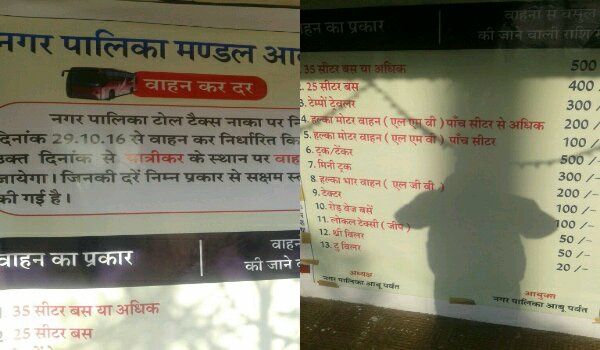 नगर पालिका मण्डल आ
वाहन कर दर
नगर पालिका टोल टैक्स नाका पर
दिनांक 29.10.16 से वाहन कर निर्धारित
उक्त दिनांक से यात्रीकर के स्थान पर
जायेगा। जिनकी दरें निम्न प्रकार से सक्षम
की गई है।
वाहन का प्रकार
की जाने
35 सीटर बस या अधिक
2 25 सीटर बस
का प्रकार
वाहनों से वसूल
की जाने वाली राशि
35 सीटर बस या अधिक 500
2. 25 सीटर बस 400
3. टेम्पो टेवलर 300
4. हल्का मोटर वाहन ( एल एम वी ) पाँच सीटर से अधिक 200
5. हल्का मोटर वाहन ( एल एम वी ) पाँच सीटर 100
6. ट्रक/टेंकर 500
7. मिनी ट्रक 300
8. हल्का भार वाहन ( एल जी वी ) 200
9. टेक्टर 100
10. रोड़ वेज बसें 100
11. लोकल टेक्सी ( जीप ) 50
12. थ्री विलर 50
13. टु विलर 20
अध्यक्ष
नगर पालिका आबू पर्वत
आयुक्त
नगर पालिका आबू पर्वत